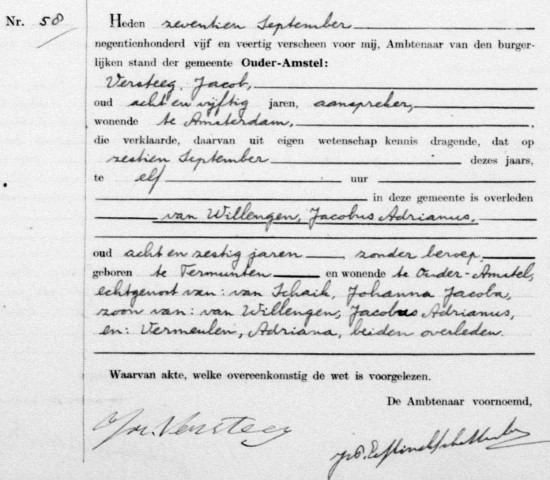 Nr. 58
Heden zeventien September
negentienhonderd vijf en veertig verscheen voor mij, Ambtenaar van den burger-
lijken stand der gemeente Ouder-Amstel:
Versteeg, Jacob,
oud acht en vijftig jaren, aanspreker,
wonende te Amsterdam,
die verklaarde, daarvan uit eigen wetenschap kennis dragende, dat op
zestien September dezes jaars,
te elf uur
in deze gemeente is overleden
van Willengen, Jacobus Adrianus,
oud acht en zestig jaren, zonder beroep,
geboren te Termunten en wonende te Ouder-Amstel,
echtgenoot van: van Schaik, Johanna Jacoba,
zoon van: van Willengen, Jacobus Adrianus,
en: Vermeulen, Adriana, beiden overleden.
Waarvan akte, welke overeenkomstig de wet is voorgelezen.
De Ambtenaar voornoemd,
Versteeg